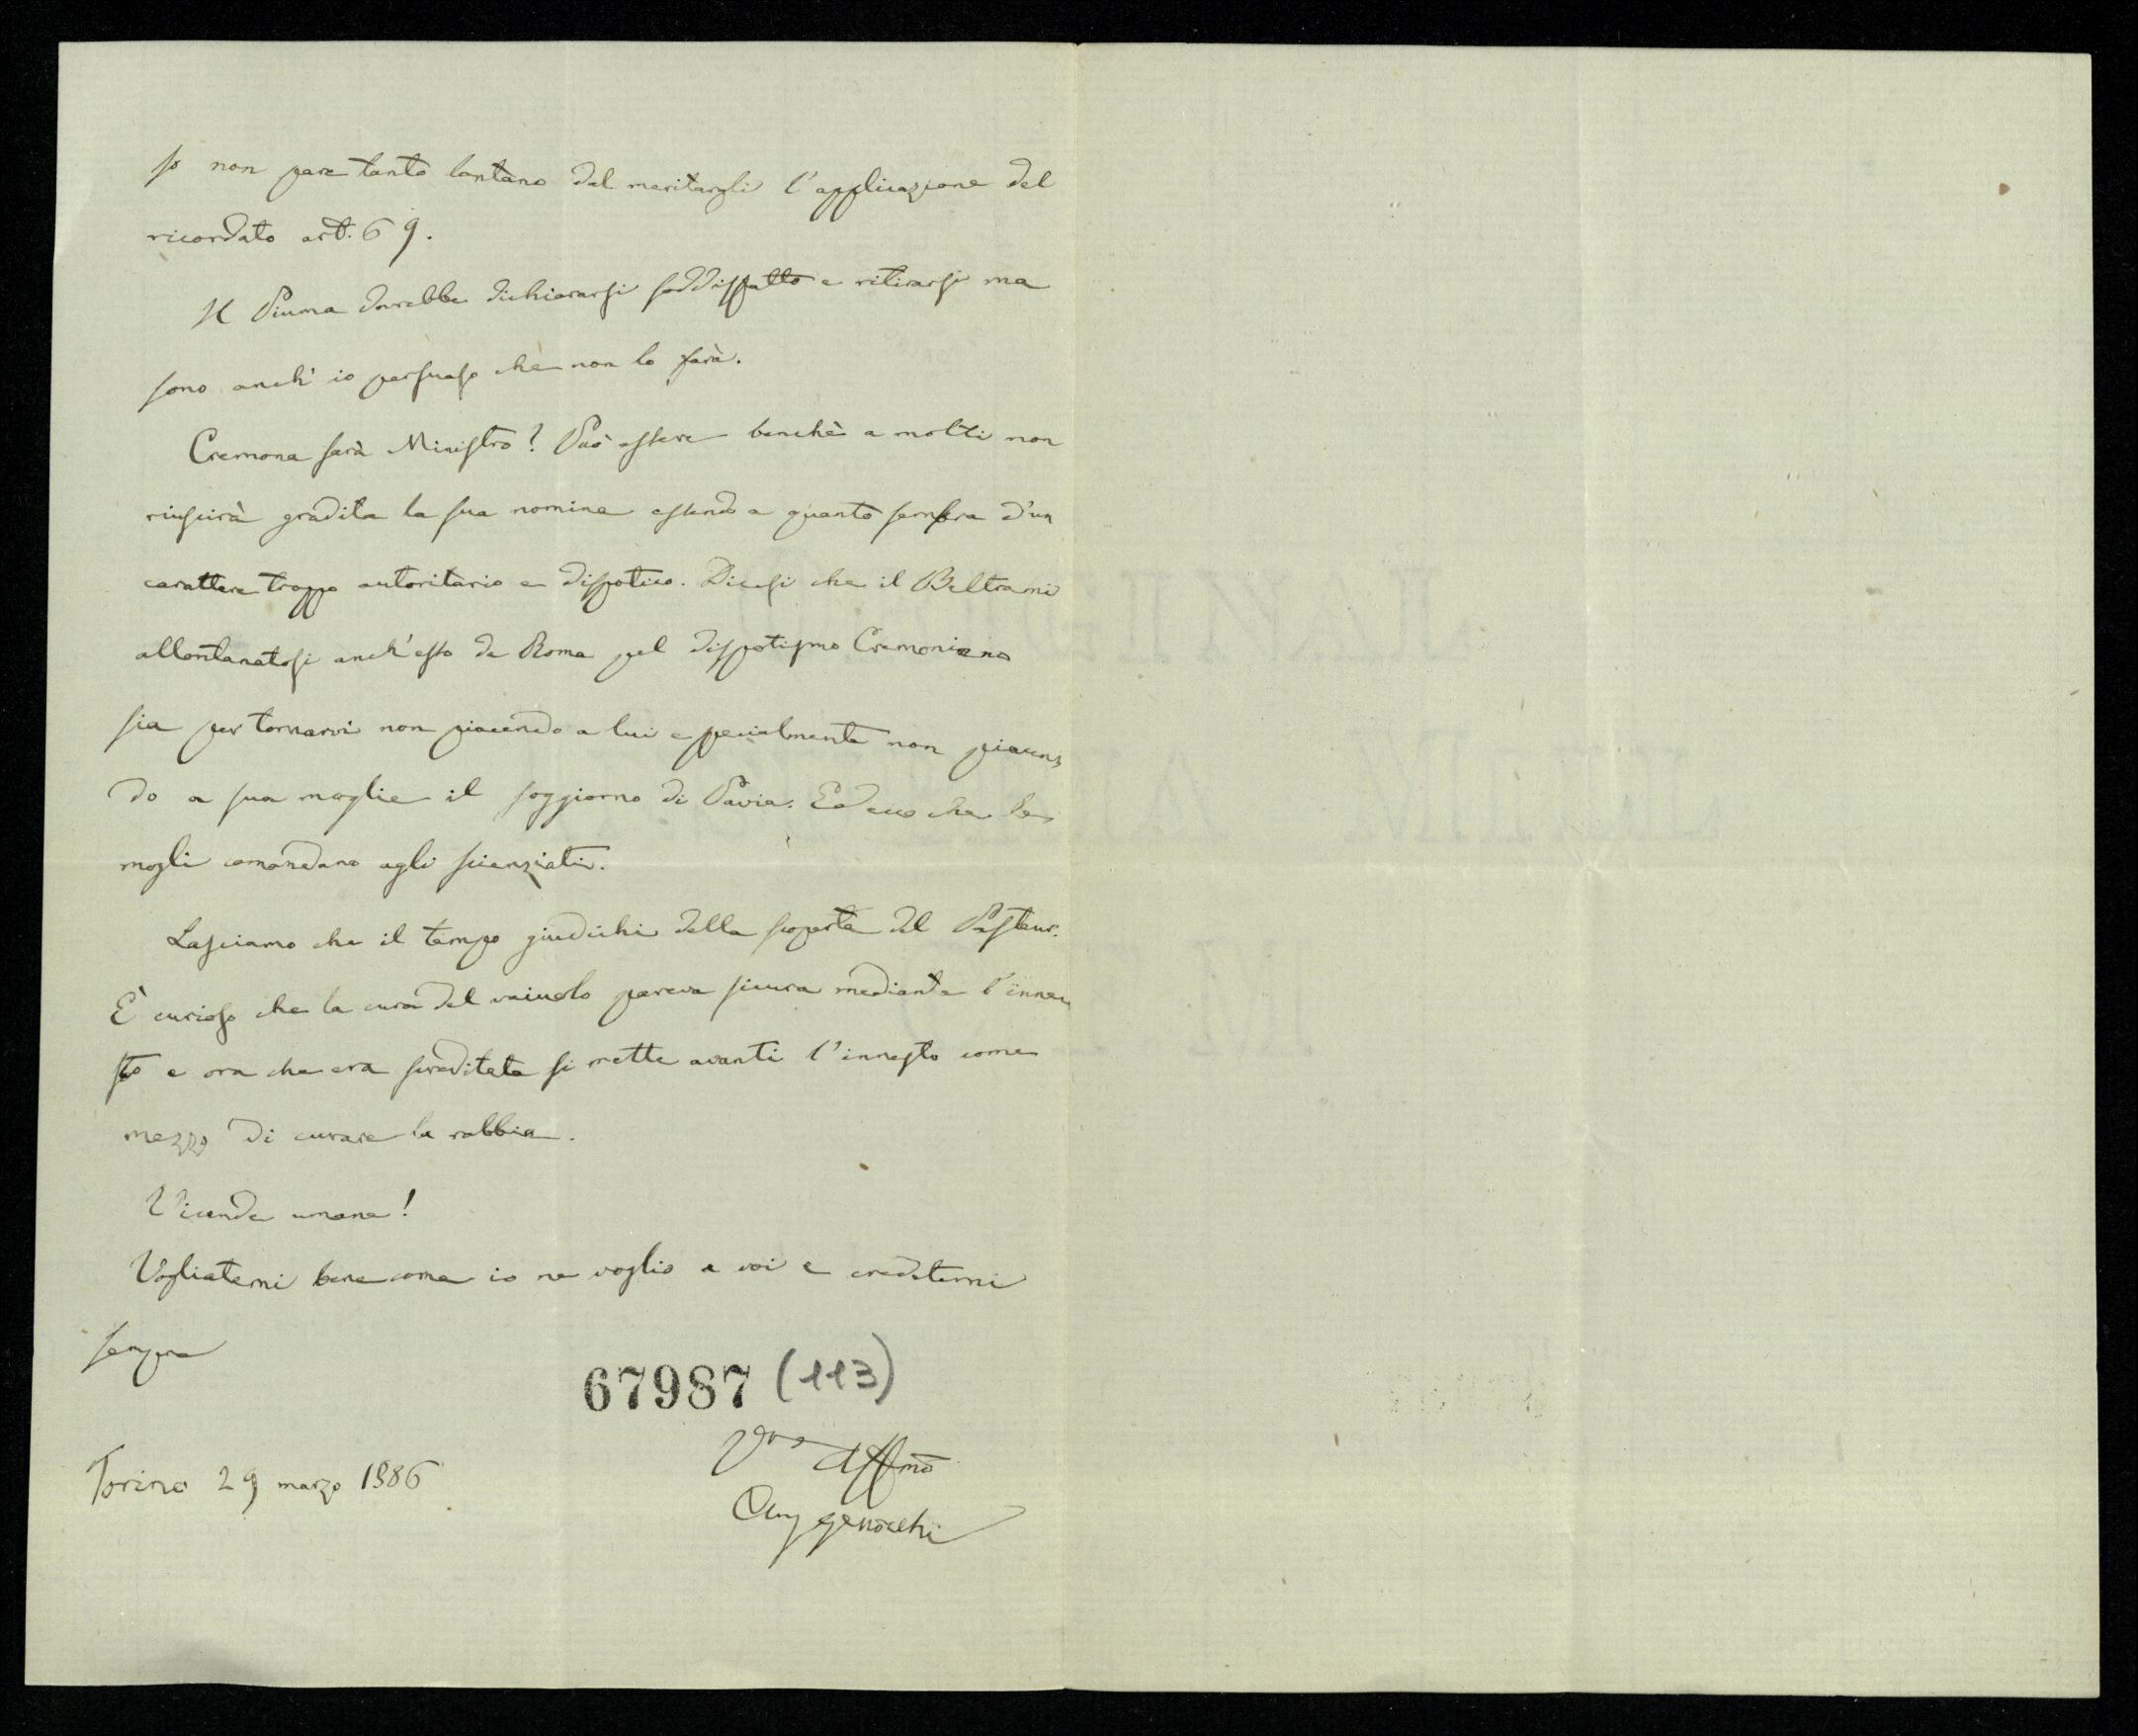 so non pare tanto lontano dal meritargli l'applicazione del
ricordato art. 69.
Il Piuma dovrebbe dichiararsi soddisfatto e ritirarsi ma
sono anch'io persuaso che non lo farà.
Cremona sarà Ministro? Può essere benchè a molti non
riuscirà gradita la sua nomina essendo a quanto sembra d'un
carattere troppo autoritario e dispotico. Dicesi che il Beltrami
allontanatosi anch'esso da Roma pel dispotismo Cremoniano
sia per tornarvi non piacendo a lui e specialmente non piacen
do a sua moglie il soggiorno di Pavia. Ed ecco che le
mogli comandano agli scienziati.
Lasciamo che il tempo giudichi della scoperta del Pasteur.
È curioso che la cura del vaiuolo pareva sicura mediante l'inne
sto e ora che era screditata si mette avanti l'innesto come
mezzo di curare la rabbia.
Vicende umane!
Vogliatemi bene come io ne voglio a voi e credetemi
sempre
67987 (113)
Vro Affmo
Torino 29 marzo 1886
Ang Genocchi